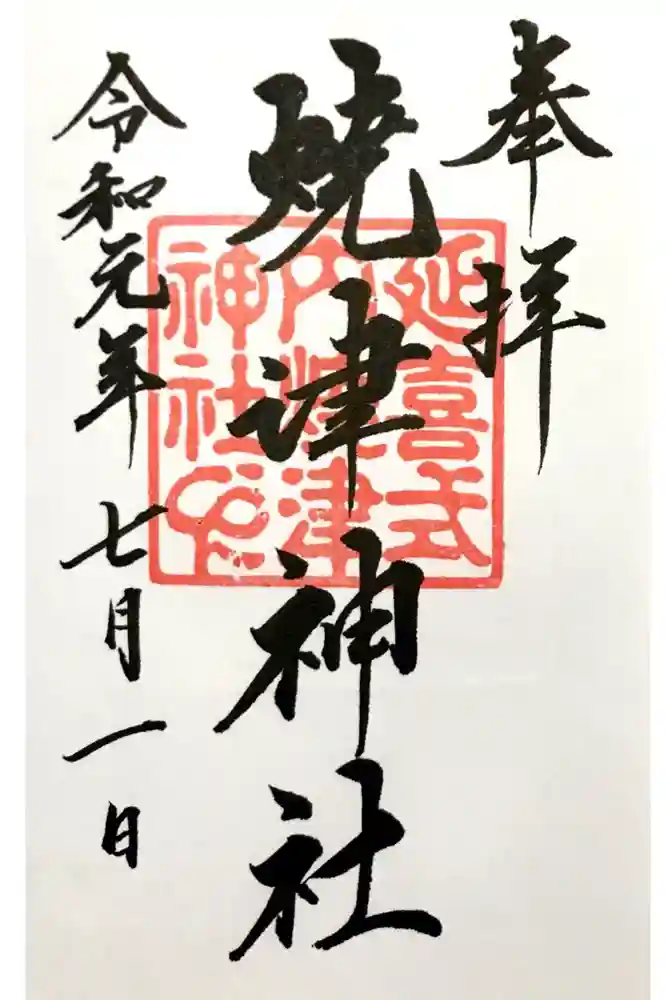 奉拝
燒津神社
延喜式
内燒津
神社印
令和元年七月一日